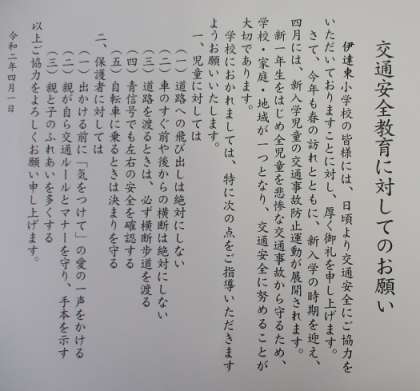 交通安全教育に対してのお願い
伊達東小学校の皆様には、日頃より交通安全にご協力を
いただいておりますことに対し、厚く御礼を申し上げます。
さて、今年も春の訪れとともに、新入学の時期を迎え、
四月には、新入学児童の交通事故防止運動が展開されます。
新一年生をはじめ全児童を悲惨な交通事故から守るため、
学校・家庭・地域が一つとなり、交通安全に努めることが
大切であります。
学校におかれましては、特に次の点をご指導いただきます
ようお願いいたします。
一、児童に対しては
（一）道路への飛び出しは絶対にしない
（二）車のすぐ前や後からの横断は絶対にしない
（三）道路を渡るときは、必ず横断歩道を渡る
（四）青信号でも左右の安全を確認する
（五）自転車に乗るときは決まりを守る
二、保護者に対しては
（一）出かける前に「気をつけて」の愛の一声をかける
（二）親が自ら交通ルールとマナーを守り、手本を示す
（三）親と子のふれあいを多くする
以上ご協力をよろしくお願い申し上げます。
令和二年四月一日